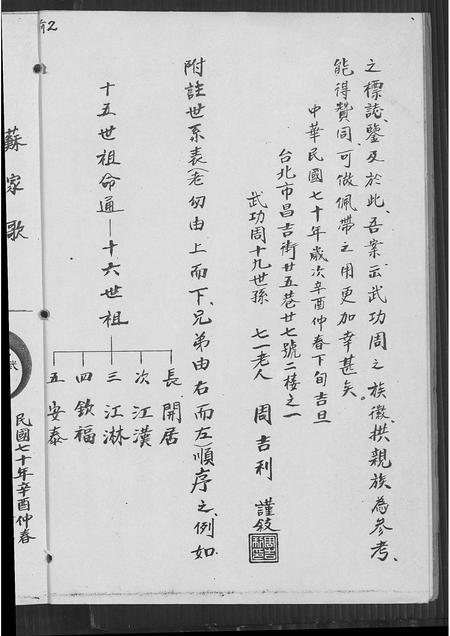 之標誌、鑒及於此、吾案云武功周之族徽、拱親族為參考、
能得贊同、可做佩帶之用更加幸甚矣。
中華民國七十年歲次辛酉仲春下旬吉旦
台北市昌吉街廿五巷廿七號二樓之一
武功周十九世孫 七一老人 周吉利 謹敘
附註世系表(老幼由上而下、兄弟由右而左)順序之、例如
十五世祖命通—十六世祖
長 開居
次 江漢
三 江淋
四 欽福
五 安泰
2
蘇家歌
武
民國七十年辛酉仲春